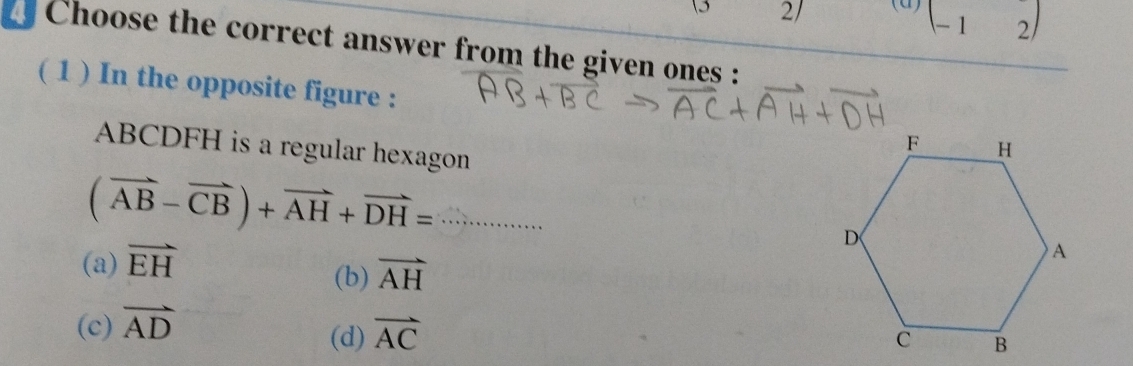 (3 2)
(d) (-1 2)
4 Choose the correct answer from the given ones :
(1) In the opposite figure :
AB + BC → AC + AH + DH
ABCDFH is a regular hexagon
(AB – CB) + AH + DH = ...............
(a) EH
(b) AH
(c) AD
(d) AC
F H
D A
C B